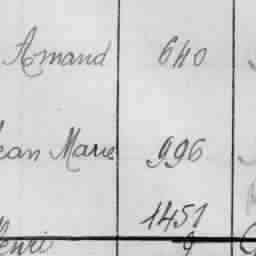 Armand 640
Jean Marie 996
1451
Henri 9